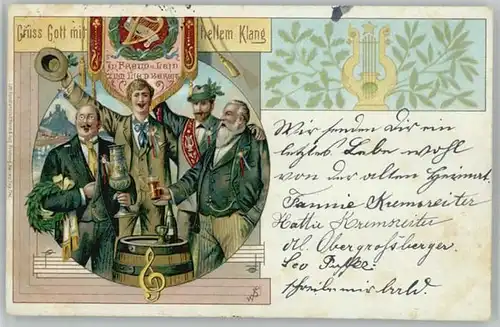 Grüss Gott mit hellem Klang
In Freud u. Leid
zum Lied bereit
Wir senden Dir ein
letztes Lebe wohl
von der alten Heimat.
Fannie Kremsreiter
Hattie Kremsreiter
Al. Obergrossberger.
Leo
schreibe mir bald.